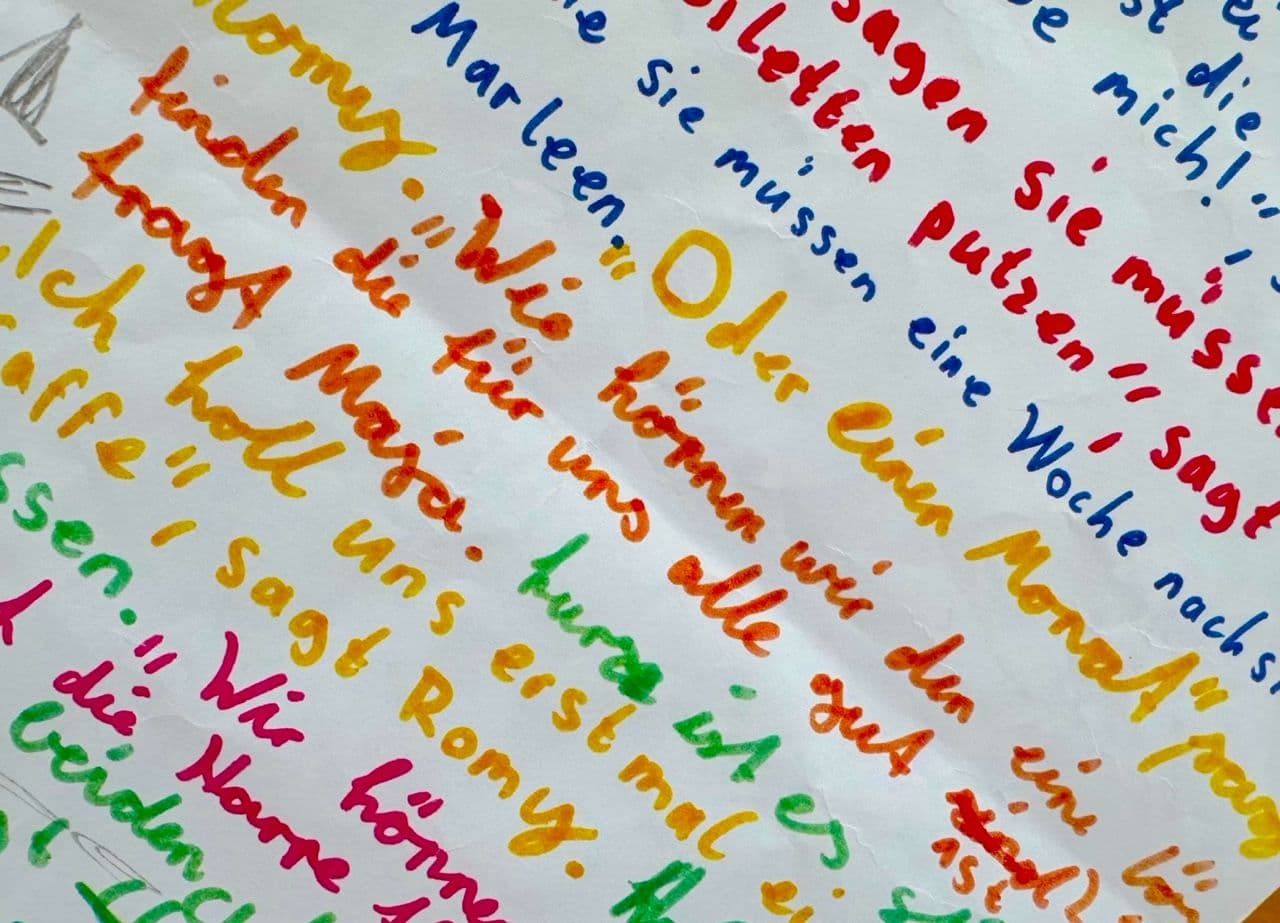 die
mich!"
sagen sie müsse
iletten putzen", sagt
sie müssen eine Woche nachs
Marleen." Oder einen Monat"
omy. "Wie können wir den eine lö
finden die für uns alle gut ist?
fragt Maja. kurz ist es
Ich holl uns erstmal ei
affe", sagt Romy.
ssen." Wir könne
die
beiden